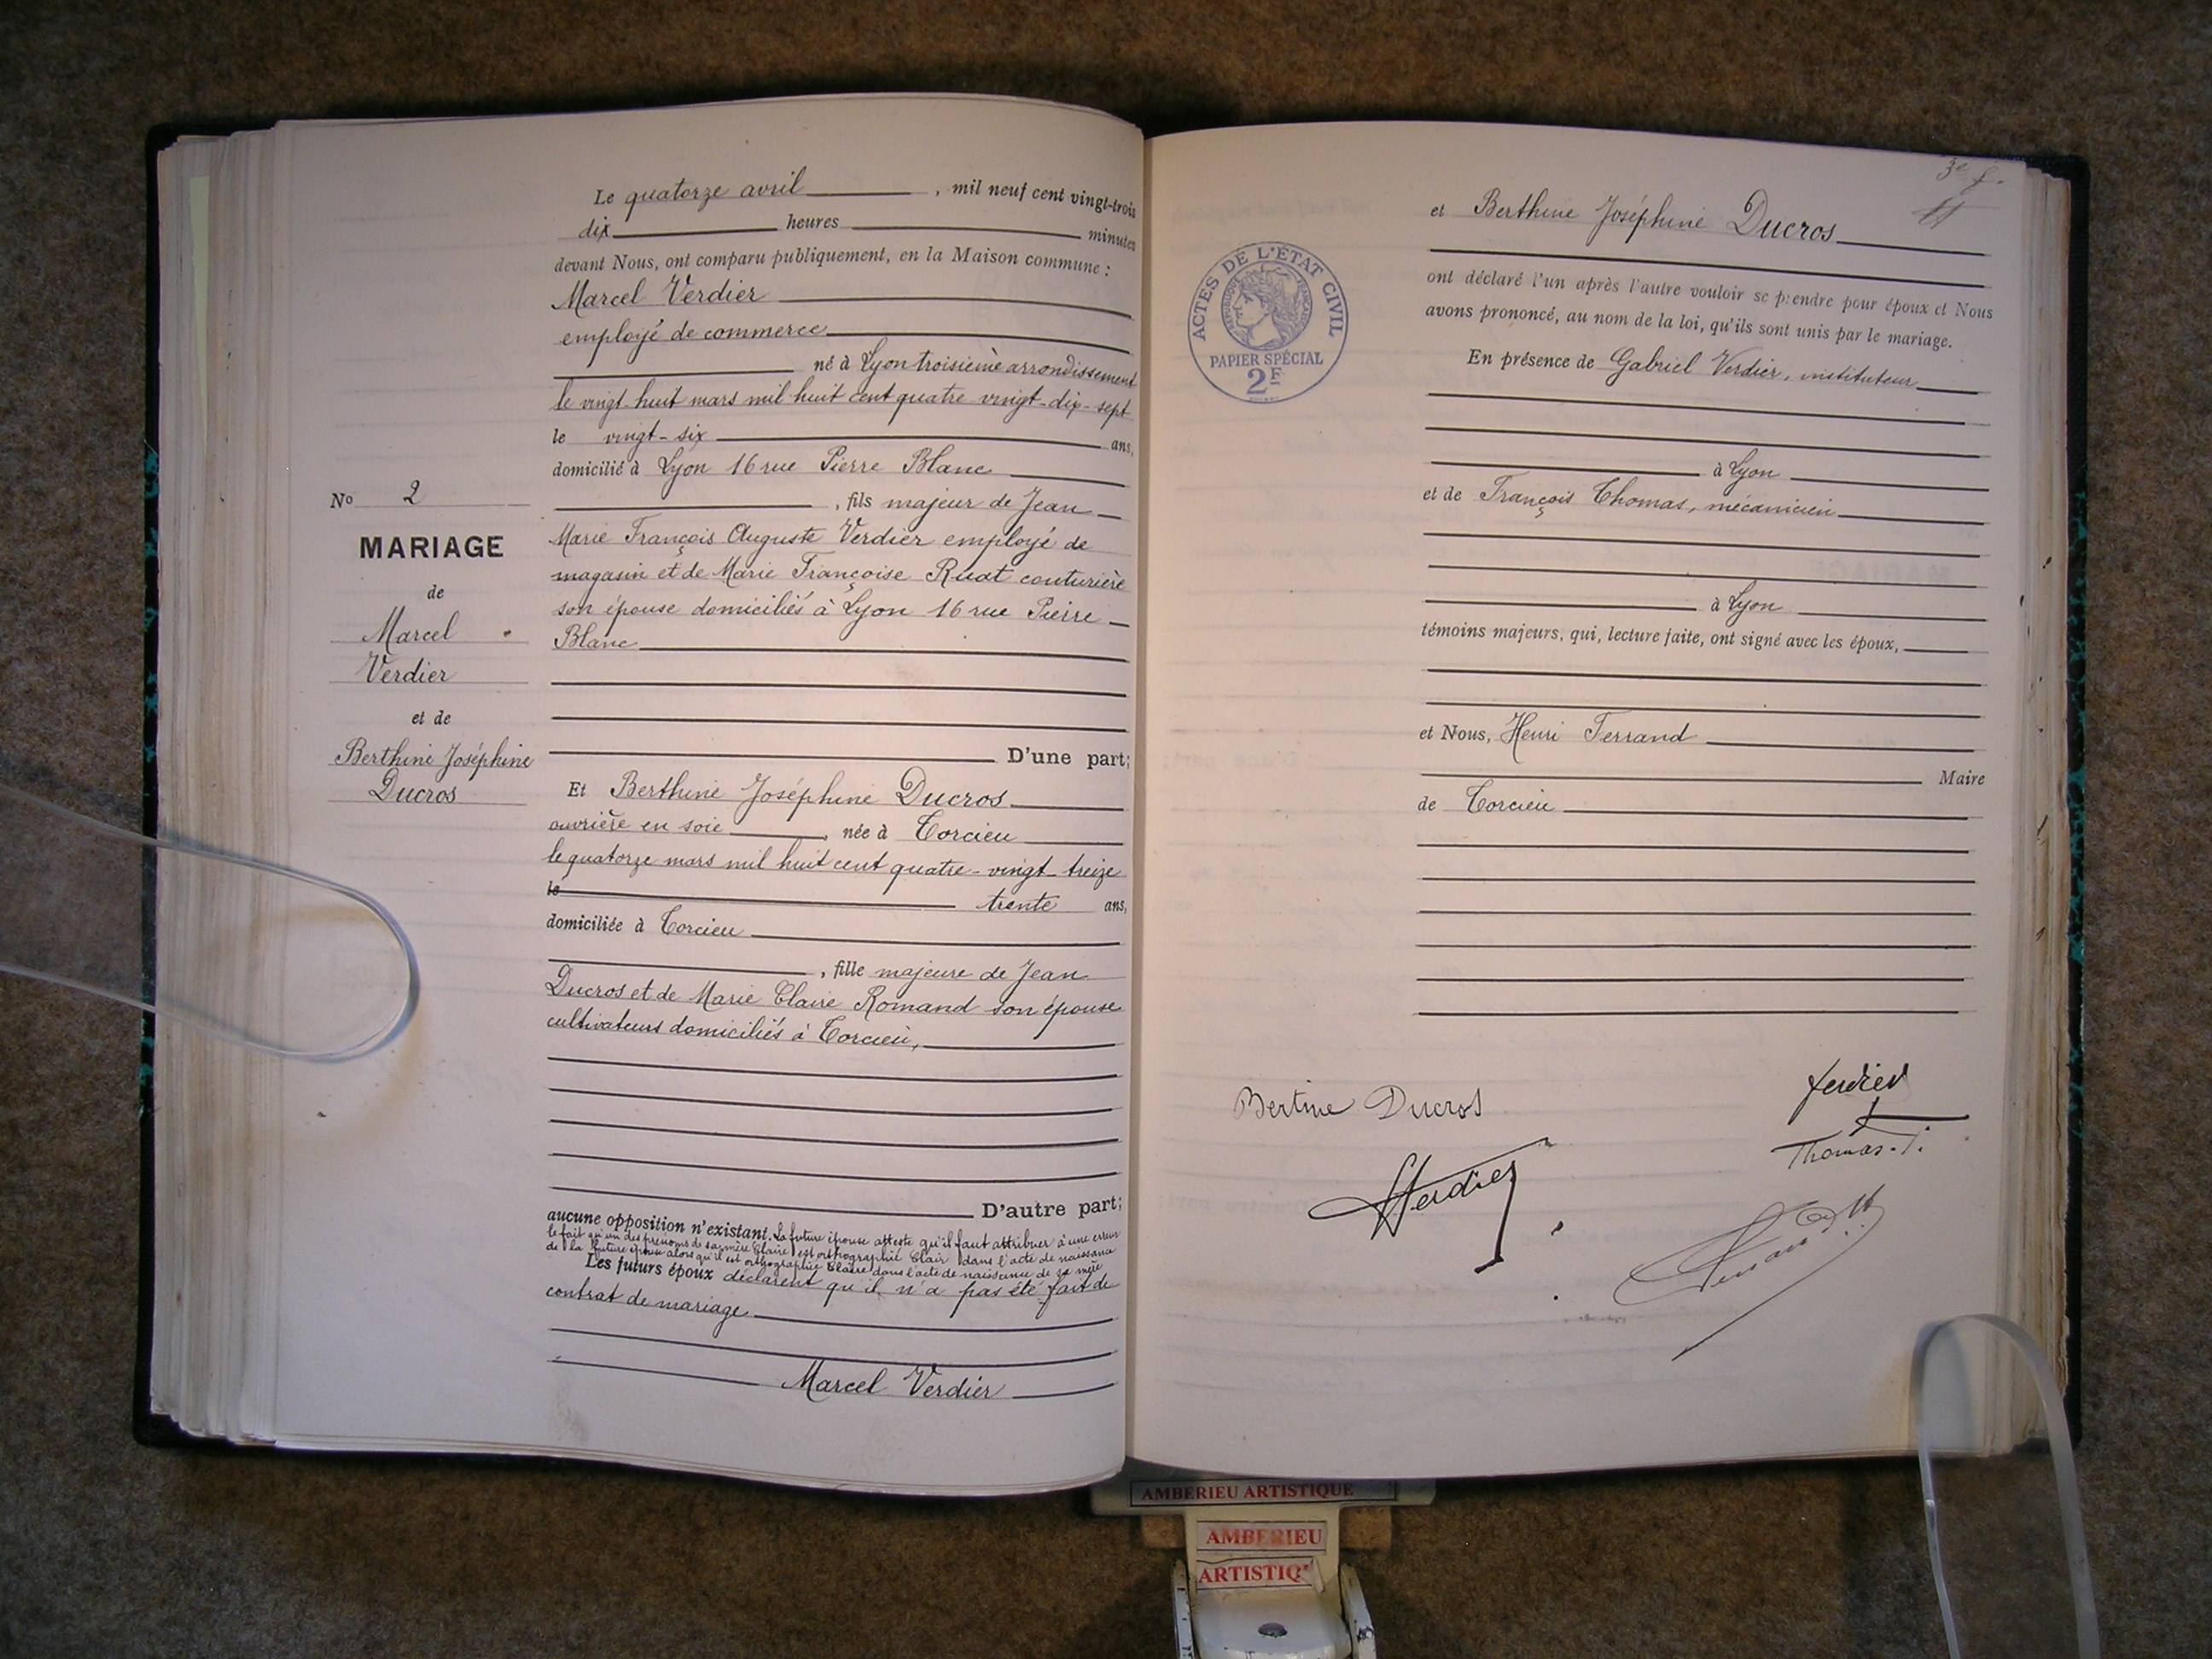 Le quatorze avril, mil neuf cent vingt-trois
dix heures minutes
devant Nous, ont comparu publiquement, en la Maison commune :
Marcel Verdier
employé de commerce
né à Lyon troisième arrondissement
le vingt-huit mars mil huit cent quatre vingt-dix-sept
le vingt-six ans,
domicilié à Lyon 16 rue Pierre Blanc
, fils majeur de Jean
Marie François Auguste Verdier employé de
magasin et de Marie Françoise Ruat couturière
son épouse domiciliés à Lyon 16 rue Pierre
Blanc
D'une part;
No 2
MARIAGE
de
Marcel
Verdier
et de
Berthine Joséphine
Ducros
Et Berthine Joséphine Ducros
ouvrière en soie, née à Torcieu
le quatorze mars mil huit cent quatre-vingt-treize
le trente ans,
domiciliée à Torcieu
, fille majeure de Jean
Ducros et de Marie Claire Romand son épouse
cultivateurs domiciliés à Torcieu,
D'autre part;
aucune opposition n'existant. La future épouse atteste qu'il faut attribuer à une erreur
le fait qu'un des prénoms de sa mère Claire est orthographié Clair dans l'acte de naissance
de la future épouse alors qu'il est orthographié Claire dans l'acte de naissance de sa mère
Les futurs époux déclarent qu'il n'a pas été fait de
contrat de mariage
Marcel Verdier
3e f.
et Berthine Joséphine Ducros
ont déclaré l'un après l'autre vouloir se prendre pour époux et Nous
avons prononcé, au nom de la loi, qu'ils sont unis par le mariage.
En présence de Gabriel Verdier, instituteur
à Lyon
et de François Thomas, mécanicien
à Lyon
témoins majeurs, qui, lecture faite, ont signé avec les époux,
et Nous, Henri Ferrand
Maire
de Torcieu
ACTES DE L'ÉTAT CIVIL
RÉPUBLIQUE FRANÇAISE
PAPIER SPÉCIAL
2F
Bertine Ducros
Verdier
Thomas. F.
Verdier
Ferrand H.
AMBERIEU ARTISTIQUE
AMBERIEU
ARTISTIQ